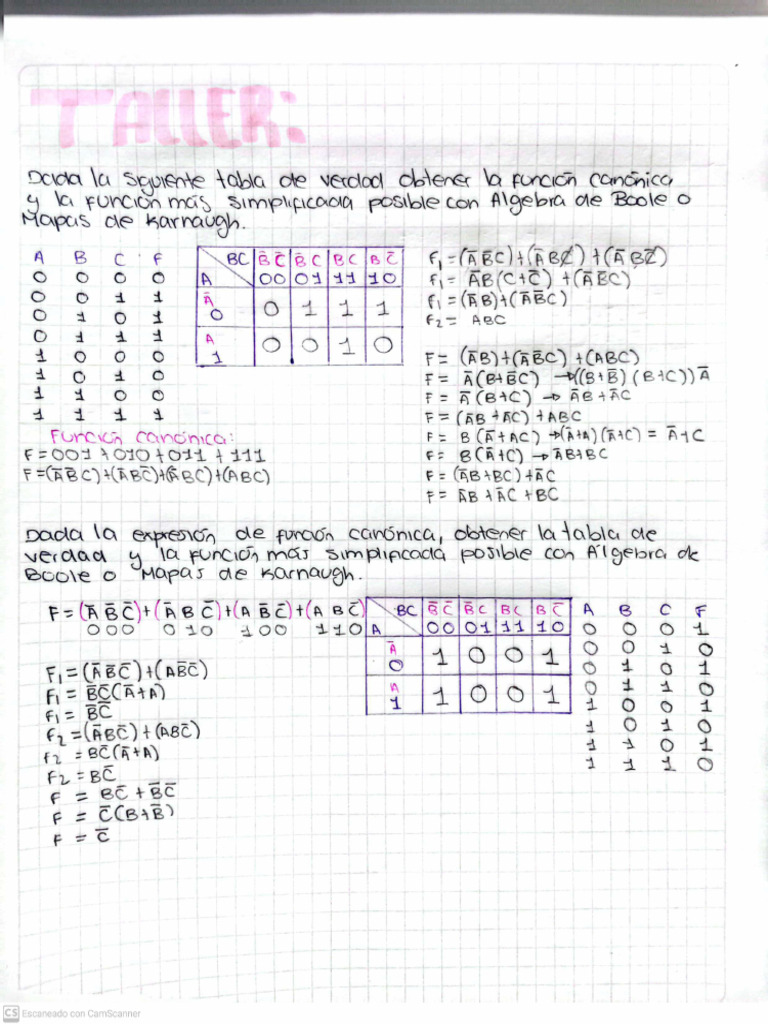 TALLER:
Dada la siguiente tabla de verdad obtener la función canónica
y la función más simplificada posible con Algebra de Boole o
Mapas de Karnaugh.
A B C F
0 0 0 0
0 0 1 1
0 1 0 1
0 1 1 1
1 0 0 0
1 0 1 0
1 1 0 0
1 1 1 1
BC B̅C̅ B̅C BC BC̅
A 00 01 11 10
A̅
0 0 1 1 1
A
1 0 0 1 0
F₁=(A̅B̅C)+(A̅BC̅)+(A̅BC̅)
F₁= A̅B(C+C̅)+(A̅B̅C)
F₁=(A̅B)+(A̅B̅C)
F₂= ABC
F= (A̅B)+(A̅B̅C)+(ABC)
F= A̅(B+B̅C) →((B+B̅)(B+C))A̅
F= A̅(B+C) → A̅B+A̅C
F=(A̅B+A̅C)+ABC
F= B(A̅+AC)→(A̅+A)(A̅+C) = A̅+C
F= B(A̅+C)→A̅B+BC
F=(A̅B+BC)+A̅C
F= A̅B+A̅C+BC
Función canónica:
F=001+010+011+111
F=(A̅B̅C)+(A̅BC̅)+(A̅BC)+(ABC)
Dada la expresión de función canónica, obtener la tabla de
verdad y la función más simplificada posible con Álgebra de
Boole o Mapas de Karnaugh.
F=(A̅B̅C̅)+(A̅BC̅)+(AB̅C̅)+(ABC̅)
000 010 100 110
BC B̅C̅ B̅C BC BC̅
A 00 01 11 10
A̅
0 1 0 0 1
A
1 1 0 0 1
A B C F
0 0 0 1
0 0 1 0
0 1 0 1
0 1 1 0
1 0 0 1
1 0 1 0
1 1 0 1
1 1 1 0
F₁=(A̅B̅C̅)+(AB̅C̅)
F₁= B̅C̅(A̅+A)
F₁= B̅C̅
F₂=(A̅BC̅)+(ABC̅)
F₂= BC̅(A̅+A)
F₂= BC̅
F = BC̅+B̅C̅
F = C̅(B+B̅)
F = C̅
CS Escaneado con CamScanner